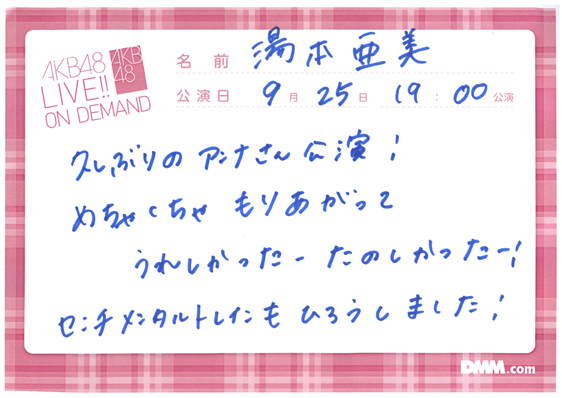 AKB48
LIVE!!
ON DEMAND
AKB
48
名前 湯本亜美
公演日 9月25日 19:00公演
久しぶりのアンナさん公演!
めちゃくちゃもりあがって
うれしかったーたのしかったー!
センチメンタルトレインもひろうしました!
DMM.com